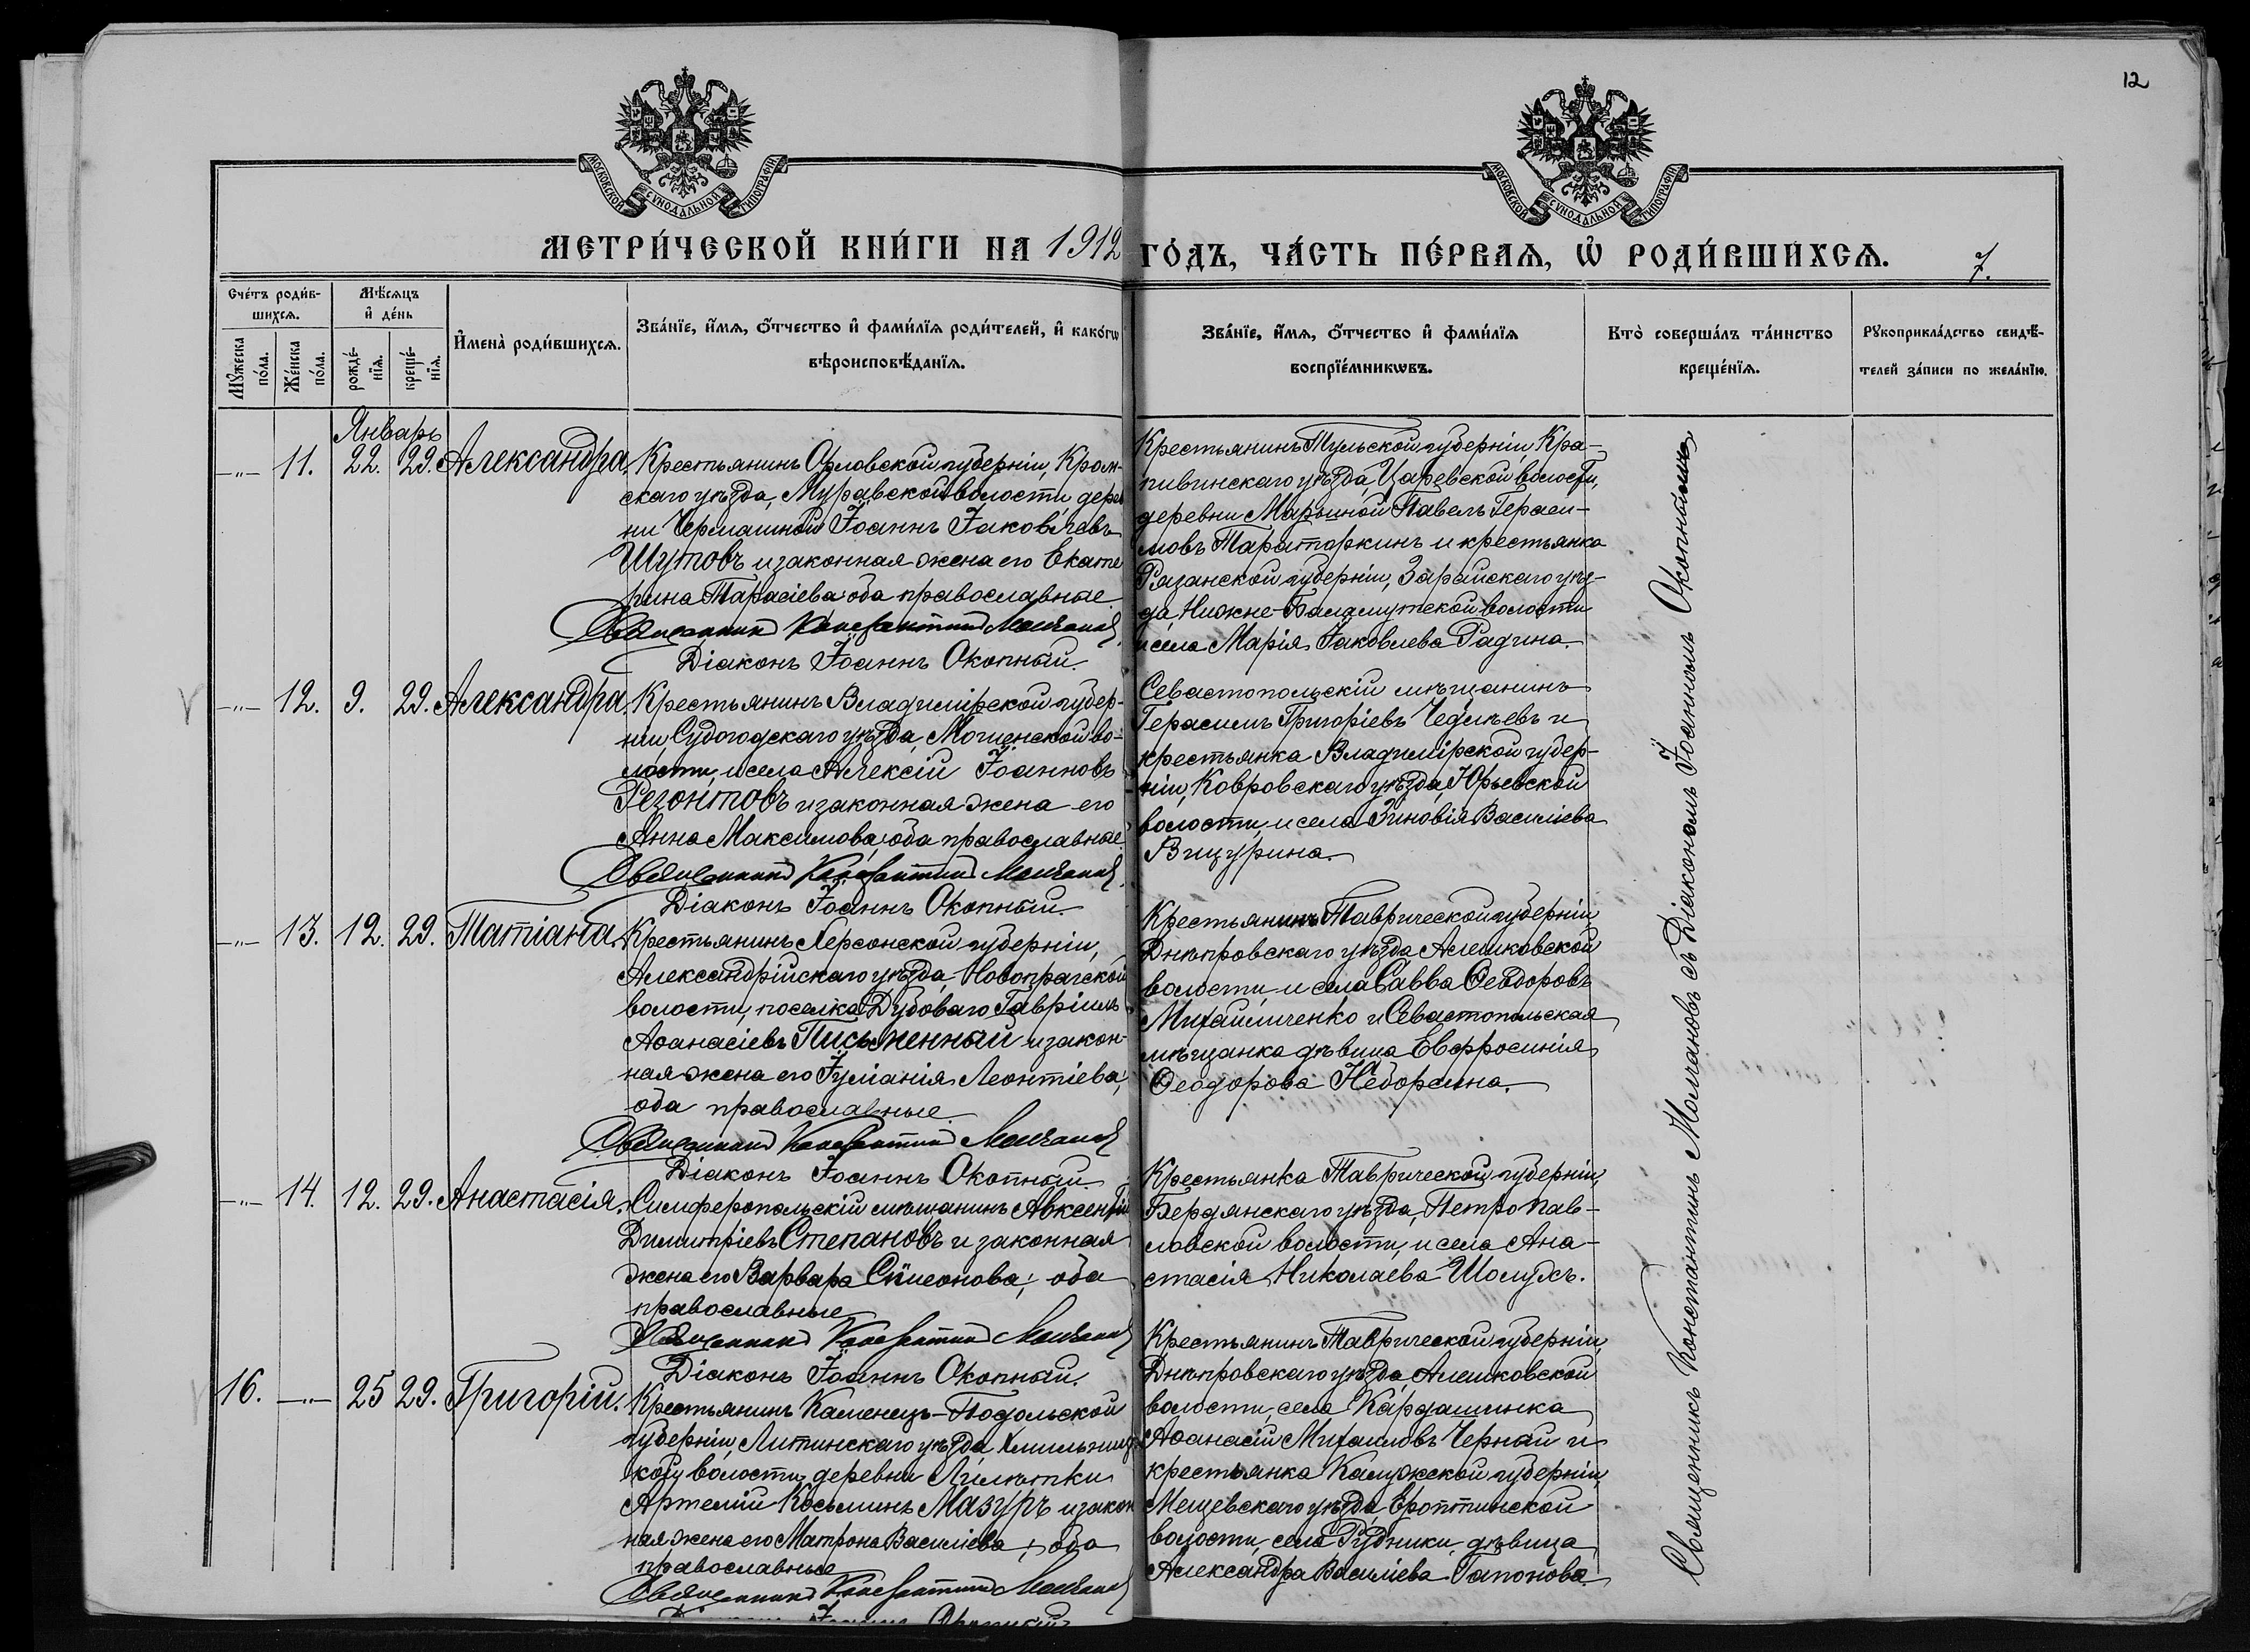 12
МОСКОВСКОЙ СУНОДАЛЬНОЙ ТИПОГРАФІИ
МОСКОВСКОЙ СУНОДАЛЬНОЙ ТИПОГРАФІИ
МЕТРИ́ЧЕСКОЙ КНИ́ГИ НА 1912 ГО́ДЪ, ЧА́СТЬ ПЕ́РВАѦ, Ѡ҆ РОДИ́ВШИХСѦ. 7.
Сче́тъ роди́в-
шихсѧ.
Мꙋжеска по́ла.
Же́нска по́ла.
Мѣ́сѧцъ
и҆ де́нь
рожде́-
нїѧ.
креще́-
нїѧ.
И҆мена̀ роди́вшихсѧ.
Зва́нїе, и҆́мѧ, ѻ҆́тчество и҆ фами́лїѧ роди́телей, и҆ како́гѡ
вѣроисповѣ́данїѧ.
Зва́нїе, и҆́мѧ, ѻ҆́тчество и҆ фами́лїѧ
воспрїе́мникѡвъ.
Кто̀ соверша́лъ та́инство
креще́нїѧ.
Рꙋкоприкла́дство свидѣ́-
телей за́писи по жела́нїю.
Январь
—„— 11. 22. 29. Александра.
Крестьянинъ Орловской губерніи, Кром-
скаго уѣзда, Муравской волости дерев
ни Чермашной Іоаннъ Іаковлевъ
Шутовъ и законная жена его Екате
рина Тарасіева оба православные
Священникъ Константинъ Молчановъ
Діаконъ Іоаннъ Окопный.
Крестьянинъ Тульской губерніи Кра-
пивинскаго уѣзда, Царевской волости,
деревни Марьиной Павелъ Гераси-
мовъ Тараторкинъ и крестьянка
Рязанской губерніи, Зарайскаго уѣз-
да, Нижне-Бѣлоомутской волости
и села Марія Іаковлева Радина.
—„— 12. 9. 29. Александра.
Крестьянинъ Владимірской губер-
ніи Судогодскаго уѣзда, Мошенской во-
лости, и села Алексій Іоанновъ
Резонтовъ и законная жена его
Анна Максимова, оба православные
Священникъ Константинъ Молчановъ
Діаконъ Іоаннъ Окопный.
Севастопольскій мѣщанинъ
Герасимъ Григоріевъ и
крестьянка Владимірской губер-
ніи, Ковровскаго уѣзда, Юрьевской
волости, и села Зиновія Василіева
Вицурина.
—„— 13. 12. 29. Татіана.
Крестьянинъ Херсонской губерніи,
Александрійскаго уѣзда, Новопражской
волости, поселка Дубоваго Гавріилъ
Аѳанасіевъ Письменный и закон-
ная жена его Іуліанія Леонтіева;
оба православные
Священникъ Константинъ Молчановъ
Діаконъ Іоаннъ Окопный.
Крестьянинъ Таврической губерніи
Днѣпровскаго уѣзда Алешковской
волости и села Савва Ѳеодоровъ
Михайличенко и Севастопольская
мѣщанка дѣвица Евфросинія
Ѳеодорова
—„— 14. 12. 29. Анастасія.
Симферопольскій мѣщанинъ Авксентій
Димитріевъ Степановъ и законная
жена его Варвара Сѵмеонова; оба
православные
Священникъ Константинъ Молчановъ
Діаконъ Іоаннъ Окопный.
Крестьянка Таврической губерніи,
Бердянскаго уѣзда, Петропав-
ловской волости, и села Ана-
стасія Николаева Шолудъ.
16. —„— 25 29. Григорій.
Крестьянинъ Каменецъ-Подольской
губерніи, Литинскаго уѣзда, Хмильниц
кой волости, деревни
Артемій Косьминъ Мазуръ и закон
ная жена его Матрона Василіева; оба
православные
Священникъ Константинъ Молчановъ
Діаконъ Іоаннъ Окопный
Крестьянинъ Таврической губерніи
Днѣпровскаго уѣзда, Алешковской
волости, села Кардашинка
Аѳанасій Михаиловъ Черный и
крестьянка Калужской губерніи,
Мещевскаго уѣзда,
волости, села Рудники, дѣвица
Александра Василіева Гапонова.
Священникъ Константинъ Молчановъ съ Діакономъ Іоанномъ Окопнымъ